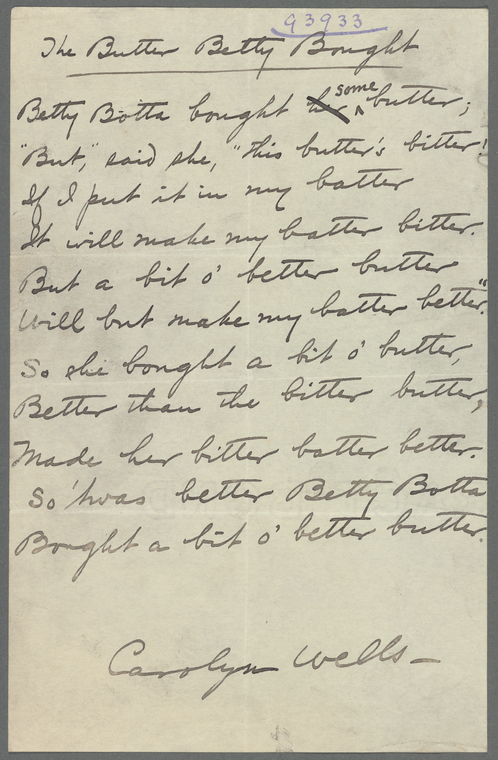 93933
The Butter Betty Bought
Betty Botta bought her some butter;
"But," said she, "this butter's bitter!
If I put it in my batter
It will make my batter bitter.
But a bit o' better butter
Will but make my batter better."
So she bought a bit o' butter,
Better than the bitter butter,
Made her bitter batter better.
So 'twas better Betty Botta
Bought a bit o' better butter.
Carolyn Wells—